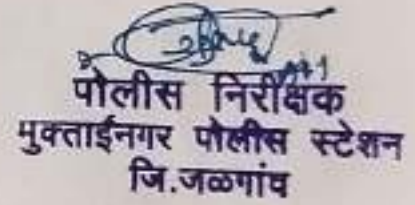 पोलीस निरीक्षक
मुक्ताईनगर पोलीस स्टेशन
जि.जळगांव